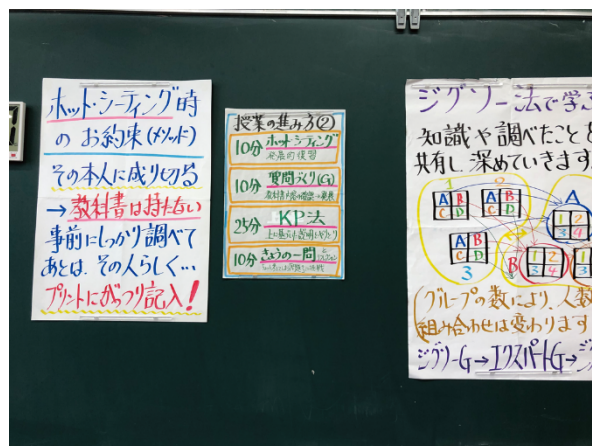 ホット・シーティング時
の お約束(メソッド)
その本人に成り切る
→教科書は持たない
事前にしっかり調べて
あとは、その人らしく…
プリントにがっつり記入!
授業の進み方②
10分 ホットシーティング
発展的復習
10分 質問づくり(G)
25分 KP法
10分 きょうの一問
ジグソー法で学ぶ
知識や調べたことを
共有し、深めていきます
1 2 A
A B A B
C D C D
1 2
3 4
A B
C D
3 B
1 2
3 4
1
3
(グループの数により、人数
組み合わせは変わります
ジグソーG→エキスパートG→ジ